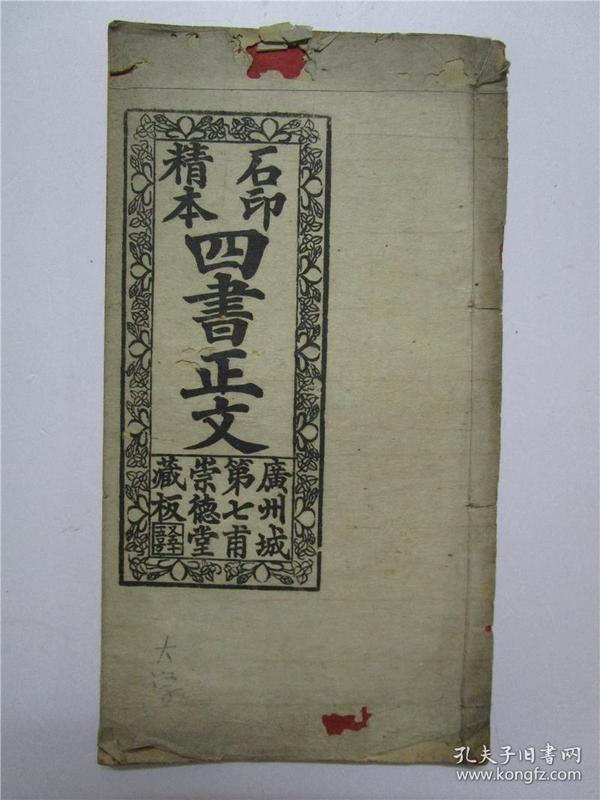 石印
精本
四書正文
廣州城
第七甫
崇德堂
藏板
大学
孔夫子旧書网
www.kongfz.com